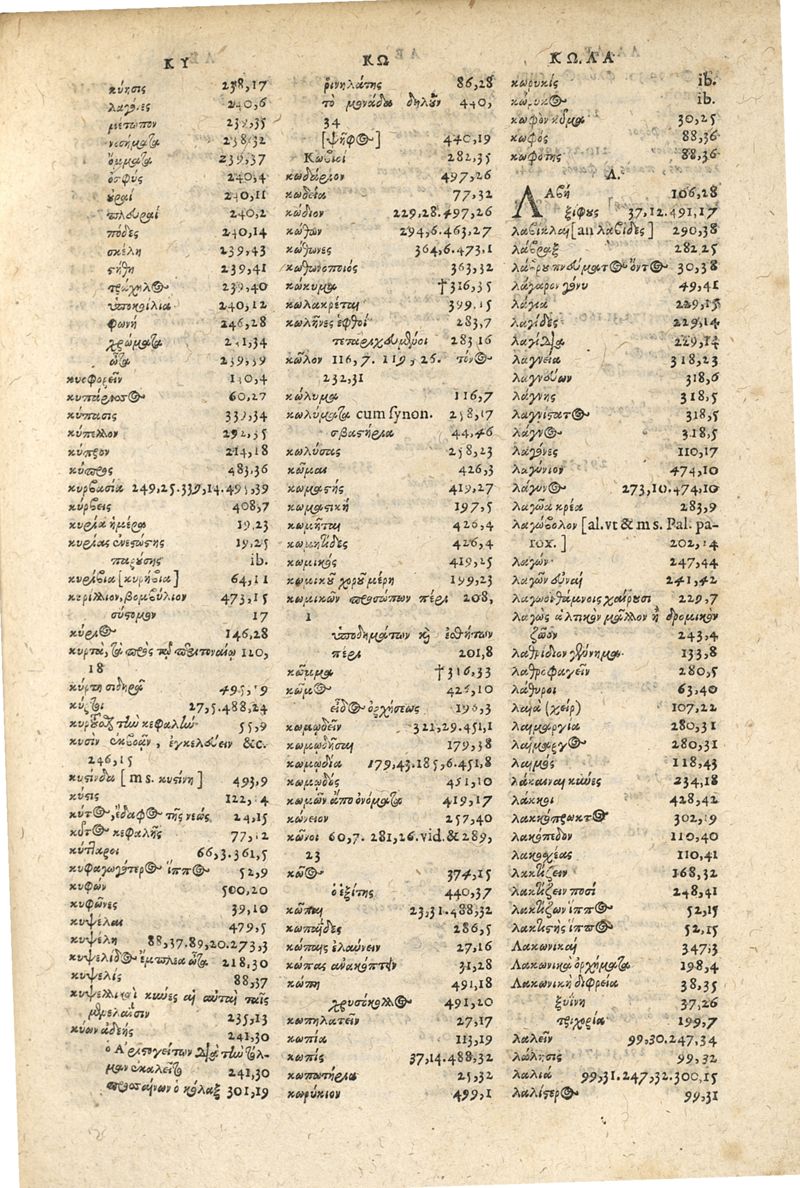 ΚΥ
κύησις 238,17
λαγόνες 240,6
μέτωπον 239,35
νοσήματα 238,32
ὄμματα 239,37
ὀσφύς 240,4
οὐραί 240,11
πλευραί 240,2
πόδες 240,14
σκέλη 239,43
στήθη 239,41
τράχηλος 239,40
ὑποκοίλια 240,12
φωνή 246,28
χρώματα 241,34
ὦτα 239,39
κυοφορεῖν
κυπάρισσος 60,27
κύπασις 339,34
κύπελλον 292,35
κύπρον 214,18
κύπρος 483,36
κυρβασία 249,25.339,14.495,39
κύρβεις 408,7
κυρία ἡμέρα 19,23
κυρίας ἐνεστώσης 19,25
παρούσης ib.
κυρίβια [κυρήβια] 64,11
κυρίλλιον, βομβύλιον 473,15
σύστομον 17
κύριος 146,28
κύρτα, τὰ πρὸς τῷ προτοναίῳ 120,
18
κύρτη σιδηρᾶ
κύρτοι 27,5.488,24
κυρτοῦν τὴν κεφαλὴν 55,9
κυσὶν ἐμβοᾶν, ἐγκελεύειν &c.
246,15
κυσίνδα [ms. κυσίνη] 493,9
κύσις
κύτος, ἔδαφος τῆς νεώς 24,15
κύτος κεφαλῆς
κύτταροι 66,3.361,5
κυφαγωγότερος ἵππος 52,9
κυφών 500,20
κυφῶνες 39,10
κυψέλαι 479,5
κυψέλη 88,37.89,20.273,3
κυψελίδος ἔμπλεα ὦτα 218,30
κυψελίς 88,37
κυψελλικαὶ κύνες αἱ αὐταὶ ταῖς
μενελαΐσιν 235,13
κύων ἀδεής 241,30
ὁ Ἀριστογείτων διὰ τὴν τόλ-
μαν ἐκαλεῖτο 241,30
προσσαίνων ὁ κόλαξ 301,19
ΚΩ
ῥινηλάτης 86,28
τὸ μονάδα δηλοῦν 440,
34
[ψῆφος] 440,19
Κωβιοί 282,35
κωδάριον 497,26
κωδεία 77,32
κώδιον 229,28.497,26
κώθων 294,6.463,27
κώθωνες 364,6.473,1
κωθωνοποιός 363,32
κώκυμα †316,35
κωλακρέται 399,15
κωλῆνες ἑφθοί 283,7
τεταριχευμένοι 283,16
κῶλον 116,7.119,26. τόνος
232,31
κώλυμα 116,7
κωλύματα cum synon. 258,17
σβεστήρια 44,46
κωλύσας 258,23
κῶμαι 426,3
κωμαστής 419,27
κωμαστική 197,5
κωμῆται 426,4
κωμήτιδες 426,4
κωμικός 419,25
κωμικοῦ χοροῦ μέρη 199,23
κωμικῶν προσώπων πέρι 208,
1
ὑποδημάτων κỳ ἐσθήτων
πέρι 201,8
κῶμμα †316,33
κῶμος 426,10
εἶδος ὀρχήσεως 196,3
κωμῳδεῖν 321,29.451,1
κωμῳδῆσαι 179,38
κωμῳδία 179,43.185,6.451,8
κωμῳδός 451,10
κωμῶν ἀπὸ ὀνόματα 419,17
κώνειον 257,40
κῶνοι 60,7. 281,26. vid. & 289,
23
κῶος 374,15
ὁ ἑξίτης 440,37
κῶπαι 23,31.488,32
κωπαΐδες 286,5
κώπαις ἐλαύνειν 27,16
κώπας ἀνακόπτειν 31,28
κώπη 491,18
χρυσόκολλος 491,20
κωπηλατεῖν 27,17
κωπία 113,19
κωπίς 37,14.488,32
κωπωτήρια 25,32
κωρύκιον 499,1
ΚΩ.ΛΑ
κωρυκίς ib.
κώρυκος ib.
κωφὸν κῦμα 30,25
κωφός 88,36
κωφότης 88,36
Λ.
Λαβή 106,28
ξίφους 37,12.491,17
λαβίκλαι [an λαβίδες] 290,38
λάβραξ 282,25
30,38
λάγαρον γόνυ 49,41
λάγια 229,15
λαγιδές 229,14
λαγίδια 229,14
λαγνεία 318,23
λαγνεύων 318,6
λάγνης 318,5
λαγνίστατος 318,5
λάγνος 318,5
λαγόνες 110,17
λαγύνιον 474,10
λάγυνος 273,10.474,10
λαγῷα κρέα 283,9
λαγωβόλον [al. vt & ms. Pal. pa-
rox.]
λαγών 247,44
λαγῶν εὐναί 241,42
λαγωοὶ θάμνοις χαίρουσι 229,7
λαγὼς ἁλτικὸν μᾶλλον ἢ δρομικὸν
ζῶον 243,4
λαθρίδιον γέννημα 133,8
λαθροφαγεῖν 280,5
λάθυροι 63,40
λαιὰ (χείρ) 107,22
λαιμαργία 280,31
λαίμαργος 280,31
λαιμός 118,43
λάκαιναι κύνες 234,18
λάκκοι 428,42
λακκόπρωκτος
λακκόπεδον 110,40
λακοχέας 110,41
λακτίζειν 168,32
λακτίζειν ποσί 248,41
λακτίζων ἵππος 52,15
λακτιστὴς ἵππος 52,15
Λακωνικαί 347,3
Λακωνικὰ ὀρχήματα 198,4
Λακωνικὴ διφρεία 38,35
ξυΐνη 37,26
τριχορία 199,7
λαλεῖν 99,30.247,34
λάλησις 99,32
λαλιά 99,31.247,32.300,15
λαλίστερος 99,31